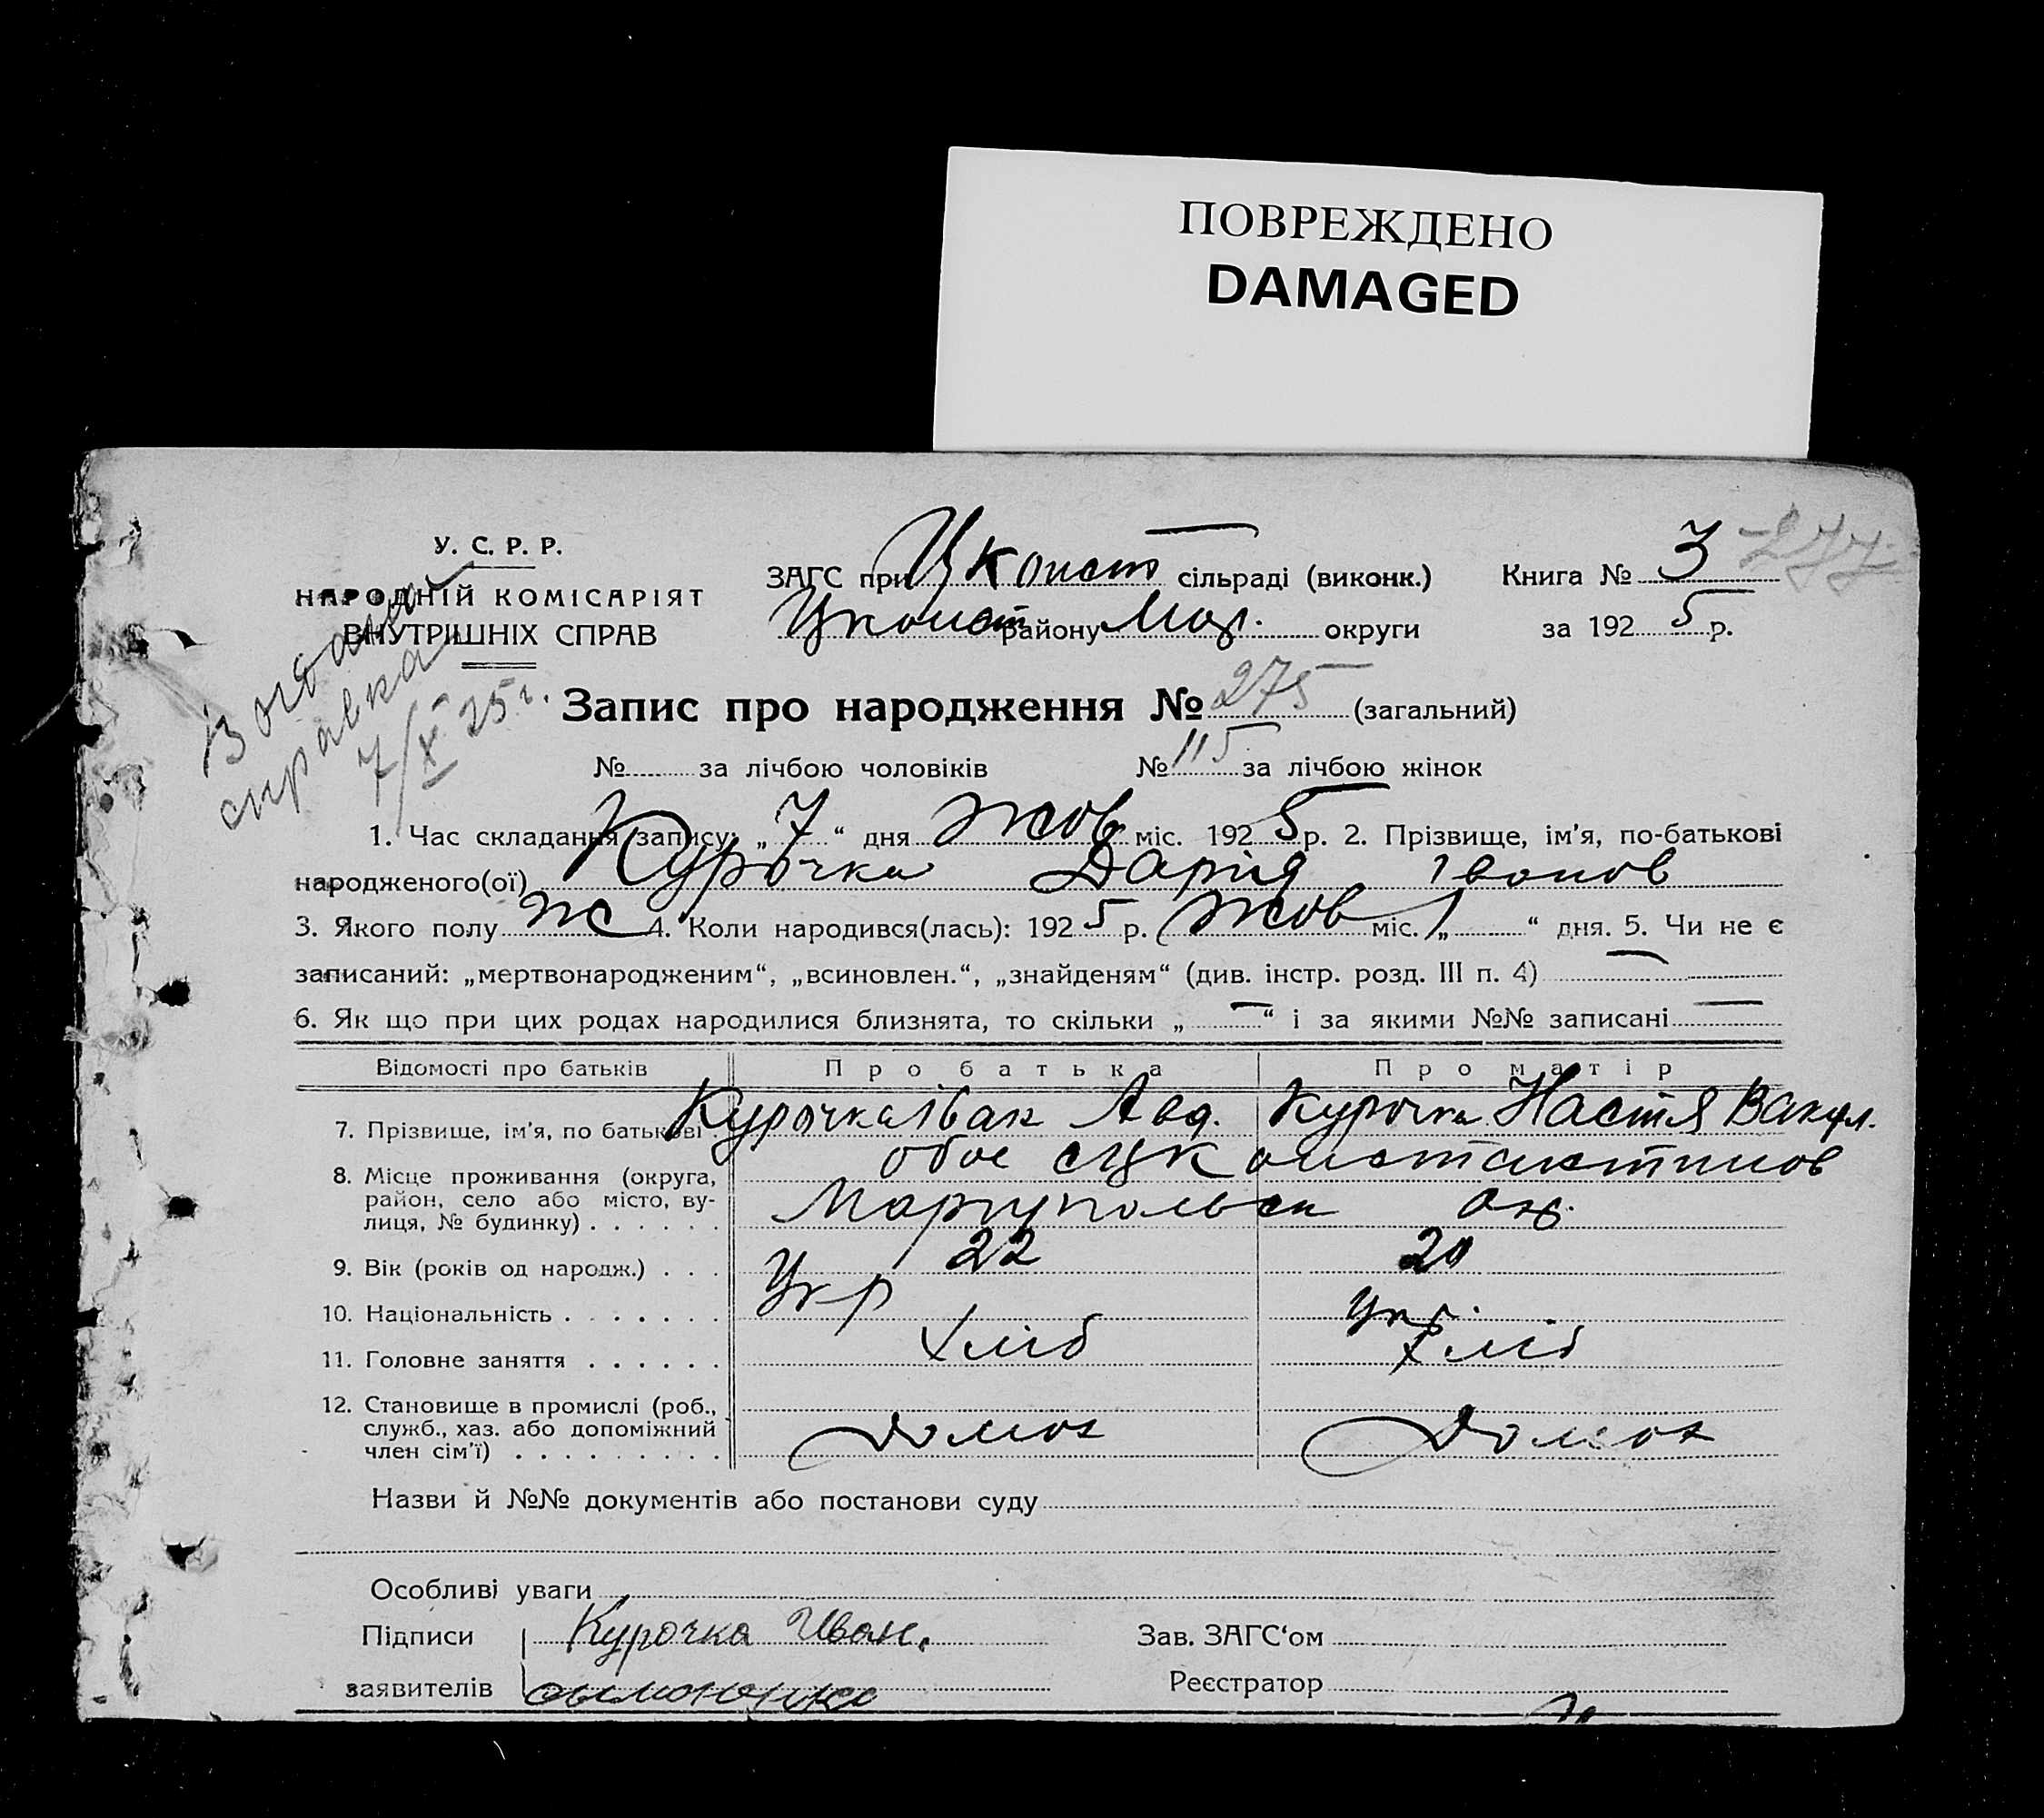 ПОВРЕЖДЕНО
DAMAGED
У. С. Р. Р.
НАРОДНІЙ КОМІСАРІЯТ
ВНУТРІШНІХ СПРАВ
ЗАГС при Цконст сільраді (виконк.) Книга № 3 277
Цконст району Мар. округи за 192 5 р.
справка
7/X 25 г.
Запис про народження № 275 (загальний)
№ за лічбою чоловіків № 115 за лічбою жінок
1. Час складання запису: „ 7 “ дня Жов міс. 192 5 р. 2. Прізвище, ім'я, по-батькові
народженого(ої) Курочка Дарія Іванов
3. Якого полу ж 4. Коли народився(лась): 192 5 р. Жов міс. „ 1 “ дня. 5. Чи не є
записаний: „мертвонародженим“, „всиновлен.“, „знайденям“ (див. інстр. розд. III п. 4) —
6. Як що при цих родах народилися близнята, то скільки „ — “ і за якими №№ записані —
Відомості про батьків Про батька Про матір
7. Прізвище, ім'я, по батькові Курочка Іван Авд. Курочка Настя Вакул.
8. Місце проживання (округа, район, село або місто, вулиця, № будинку) . . . . . . обоє с Цконстантинов
Маріупольск ок.
9. Вік (років од народж.) . . . 22 20
10. Національність . . . . . . . Укр Укр.
11. Головне заняття . . . . . . хліб хліб
12. Становище в промислі (роб.,
служб., хаз. або допоміжний
член сім'ї) . . . . . . . . . домог домог
Назви й №№ документів або постанови суду
Особливі уваги
Підписи Курочка Иван. Зав. ЗАГС‘ом
заявителів Реєстратор